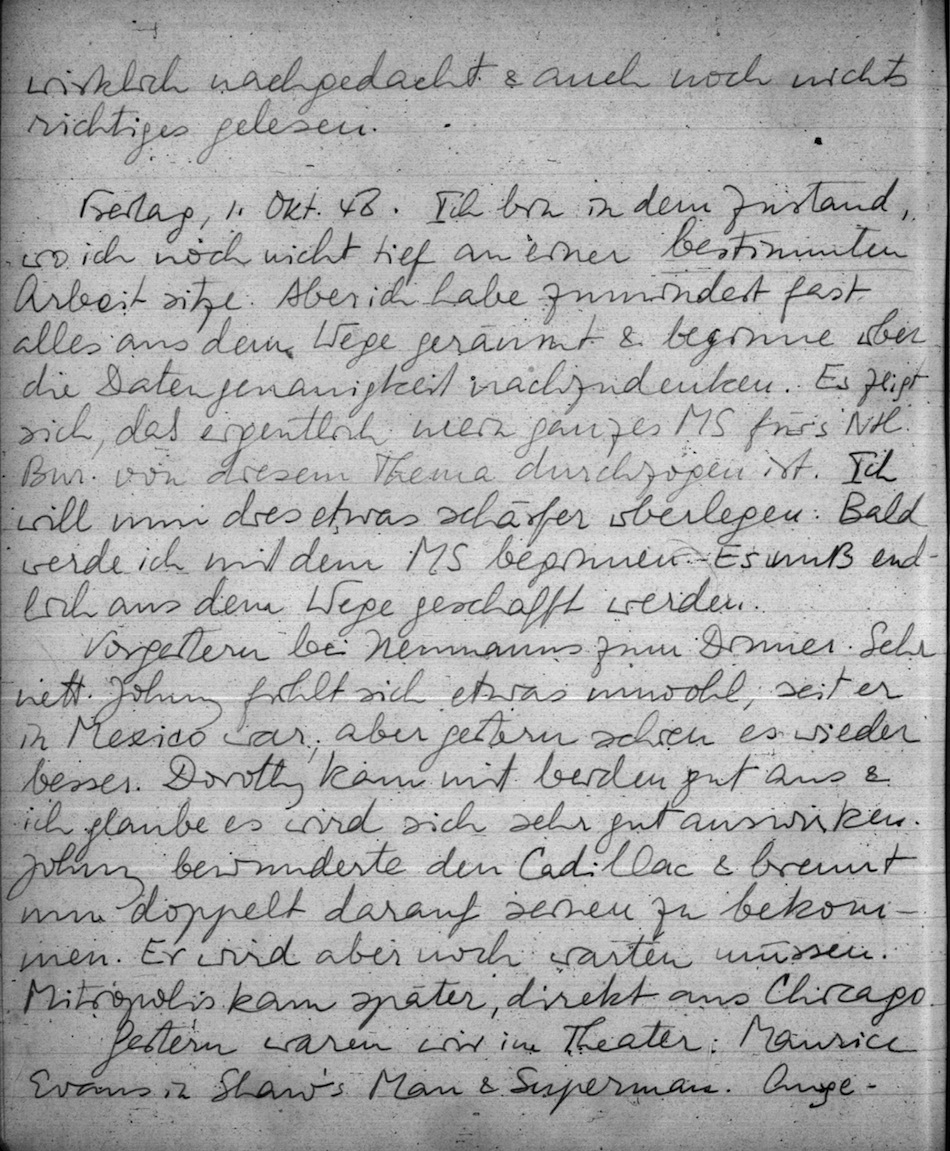 wirklich nachgedacht & auch noch nichts
richtiges gelesen.
Freitag, 1. Okt. 48. Ich bin in dem Zustand,
wo ich noch nicht tief an einer bestimmten
Arbeit sitze. Aber ich habe zumindest fast
alles aus dem Wege geräumt & beginne über
die Datengenauigkeit nachzudenken. Es zeigt
sich, daß eigentlich mein ganzes MS für's Ntl.
Bur. von diesem Thema durchzogen ist. Ich
will nun dies etwas schärfer überlegen. Bald
werde ich mit dem MS beginnen. Es muß end-
lich aus dem Wege geschafft werden.
Vorgestern bei Neumanns zum Dinner. Sehr
nett. Johny fühlt sich etwas unwohl, seit er
in Mexico war, aber gestern schien es wieder
besser. Dorothy kam mit beiden gut aus &
ich glaube es wird sich sehr gut auswirken.
Johny bewunderte den Cadillac & brennt
nun doppelt darauf seinen zu bekom-
men. Er wird aber noch warten müssen.
Mitropolis kam später, direkt aus Chicago
Gestern waren wir im Theater: Maurice
Evans in Shaw's Man & Superman. Ange-